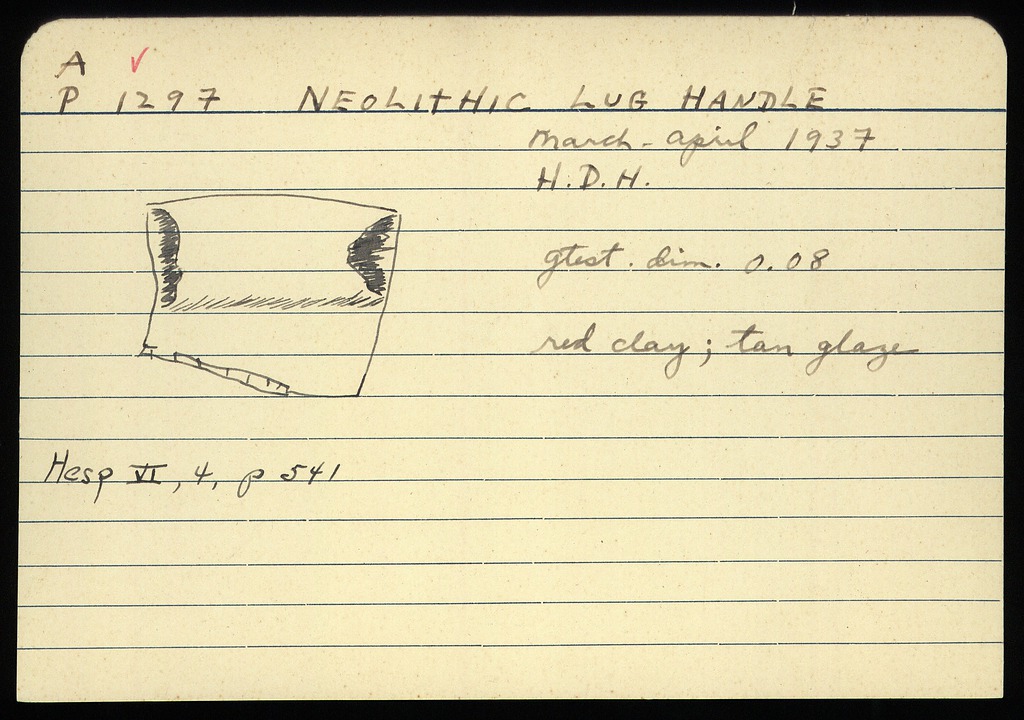 A ✓
P 1297 NEOLITHIC LUG HANDLE
March - April 1937
H.D.H.
gtest. dim. 0.08
red clay; tan glaze
Hesp VI, 4, p 541